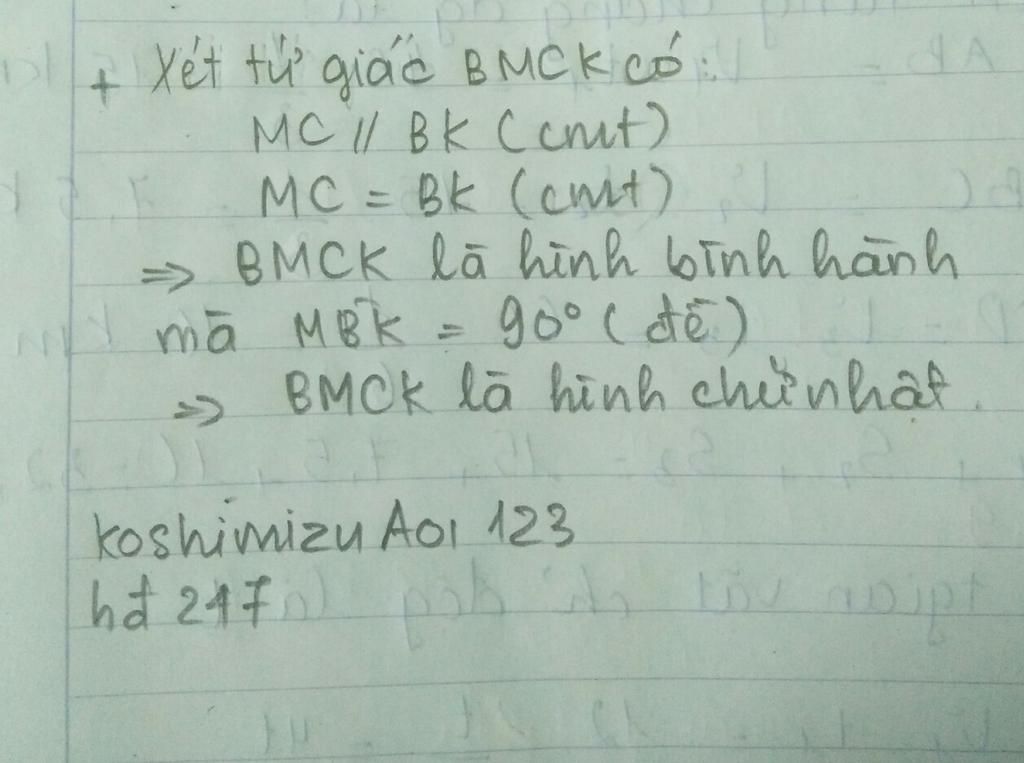 + Xét tứ giác BMCK có:
MC // BK (cmt)
MC = BK (cmt)
=> BMCK là hình bình hành
mà MBK = 90° (đề)
=> BMCK là hình chữ nhật.
koshimizu Aoi 123
hđ 247